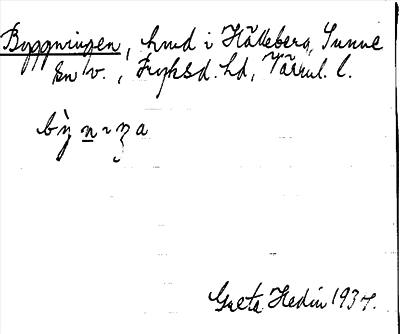 Byggningen, hmd i Hälleberg, Sunne
sn v., Fryksd. hd, Värml. l.
Greta Hedin 1937.